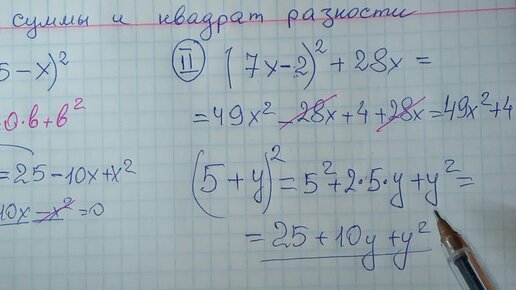 суммы и квадрат разности
5 - x)²
·b + b²
= 25 - 10x + x²
10x - x² = 0
II (7x - 2)² + 28x =
= 49x² - 28x + 4 + 28x = 49x² + 4
(5 + y)² = 5² + 2·5·y + y² =
= 25 + 10y + y²